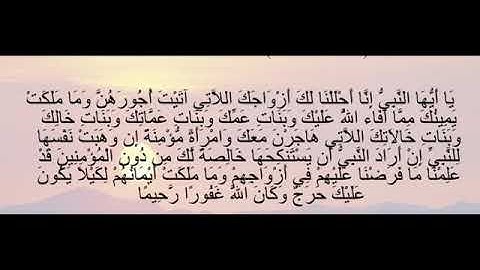 يَا أَيُّهَا النَّبِيُّ إِنَّا أَحْلَلْنَا لَكَ أَزْوَاجَكَ اللاَّتِي آتَيْتَ أُجُورَهُنَّ وَمَا مَلَكَتْ
يَمِينُكَ مِمَّا أَفَاء اللَّهُ عَلَيْكَ وَبَنَاتِ عَمِّكَ وَبَنَاتِ عَمَّاتِكَ وَبَنَاتِ خَالِكَ
وَبَنَاتِ خَالاتِكَ اللاَّتِي هَاجَرْنَ مَعَكَ وَامْرَأَةً مُّؤْمِنَةً إِن وَهَبَتْ نَفْسَهَا
لِلنَّبِيِّ إِنْ أَرَادَ النَّبِيُّ أَن يَسْتَنكِحَهَا خَالِصَةً لَّكَ مِن دُونِ الْمُؤْمِنِينَ قَدْ
عَلِمْنَا مَا فَرَضْنَا عَلَيْهِمْ فِي أَزْوَاجِهِمْ وَمَا مَلَكَتْ أَيْمَانُهُمْ لِكَيْلا يَكُونَ
عَلَيْكَ حَرَجٌ وَكَانَ اللَّهُ غَفُورًا رَّحِيمًا